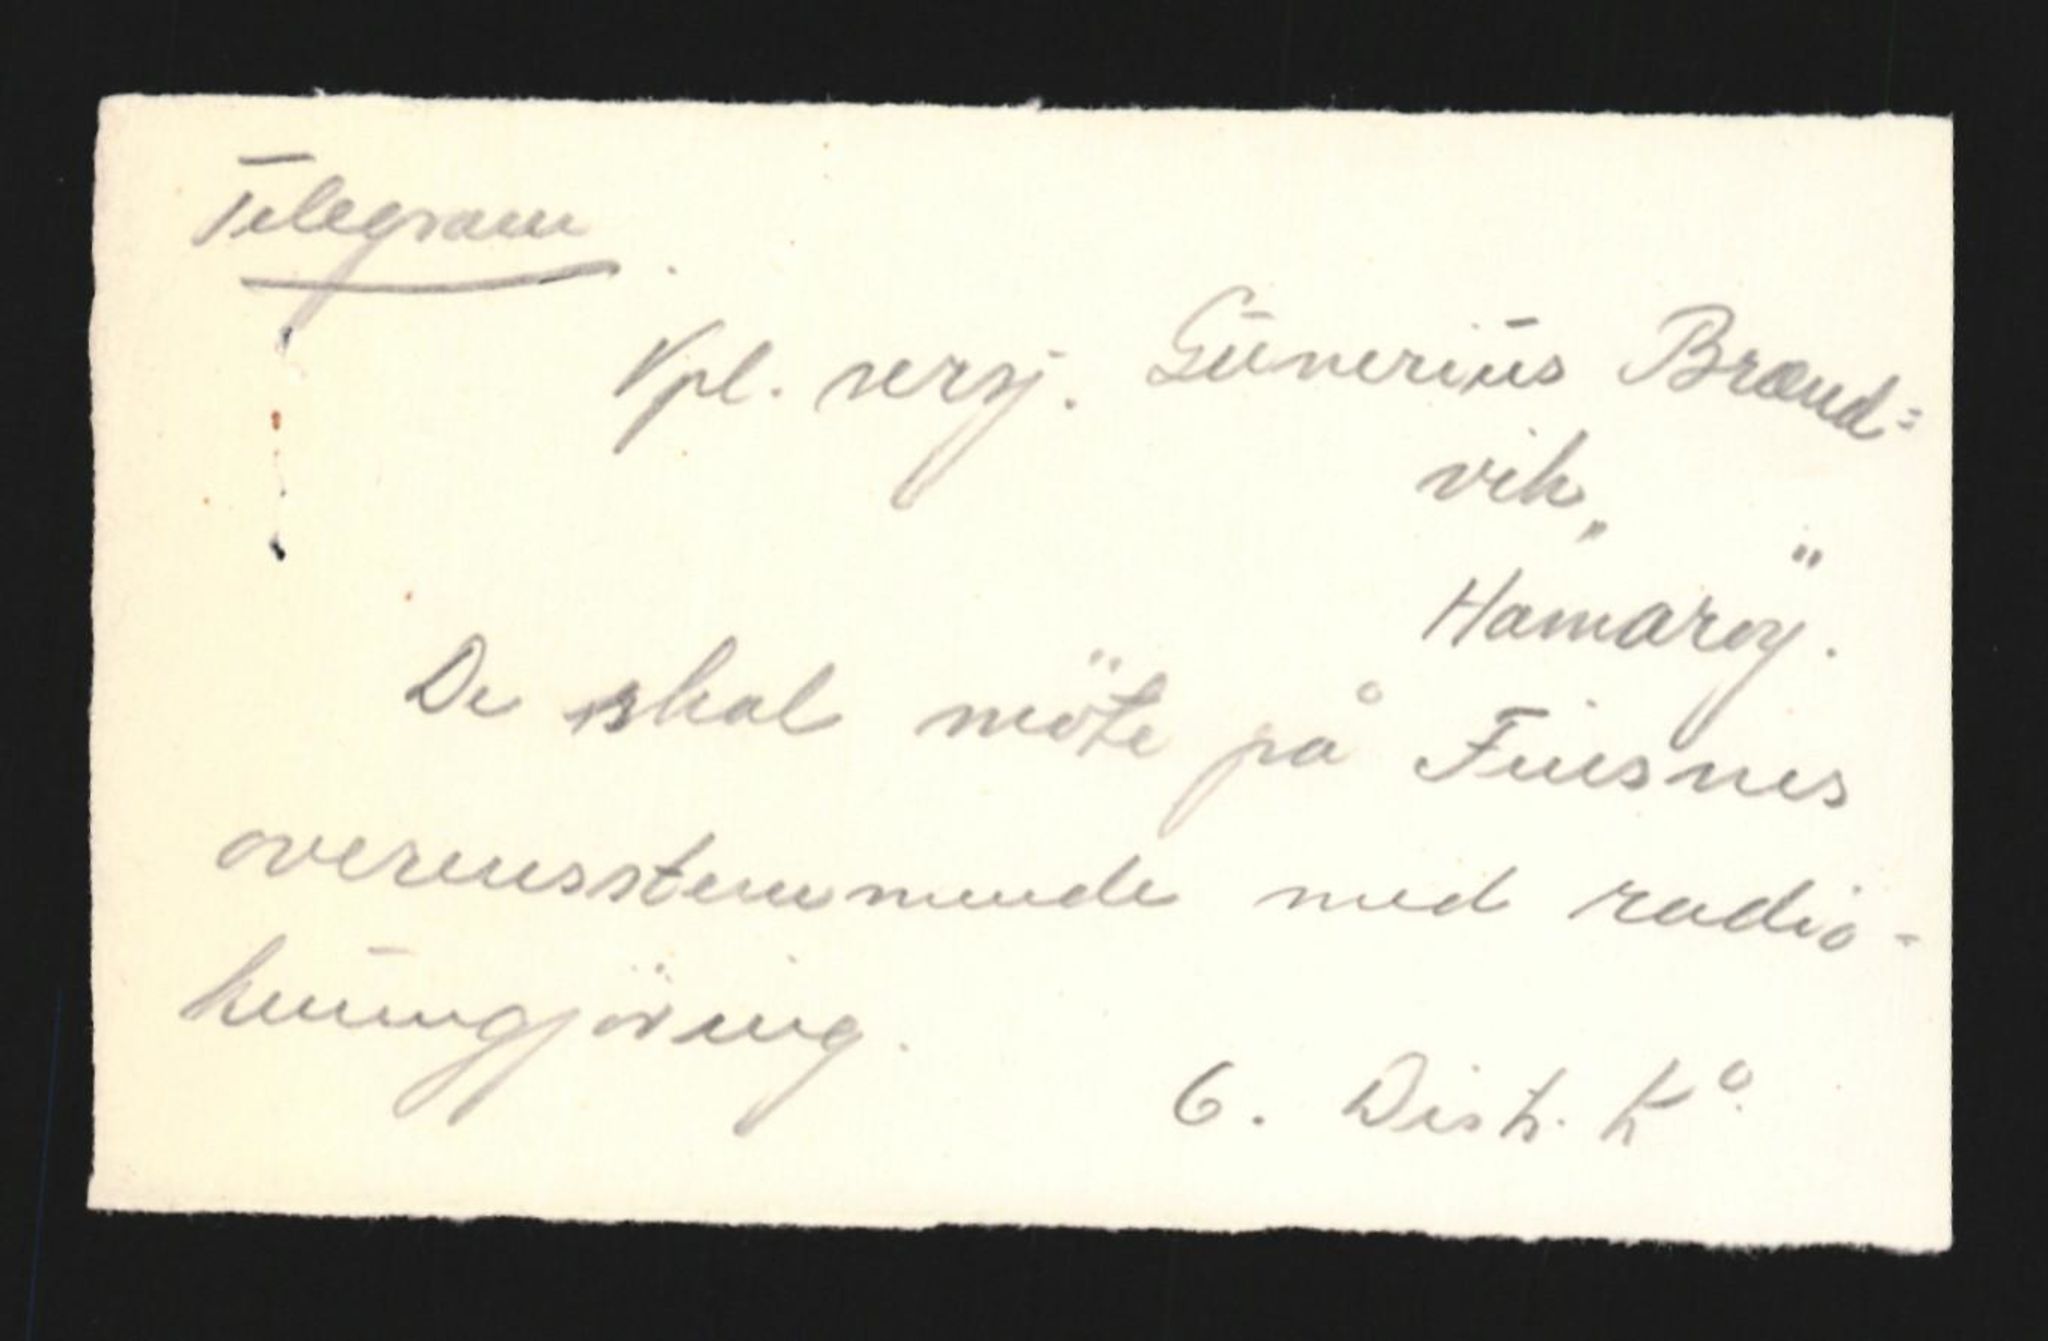 Telegram.
Vpl. sersj. Gunerius Brænd=
vik,
"Hamarøy".
De skal möte på Finsnes
overensstemmende med radio-
kunngjöring.
6. Distr. Kº.